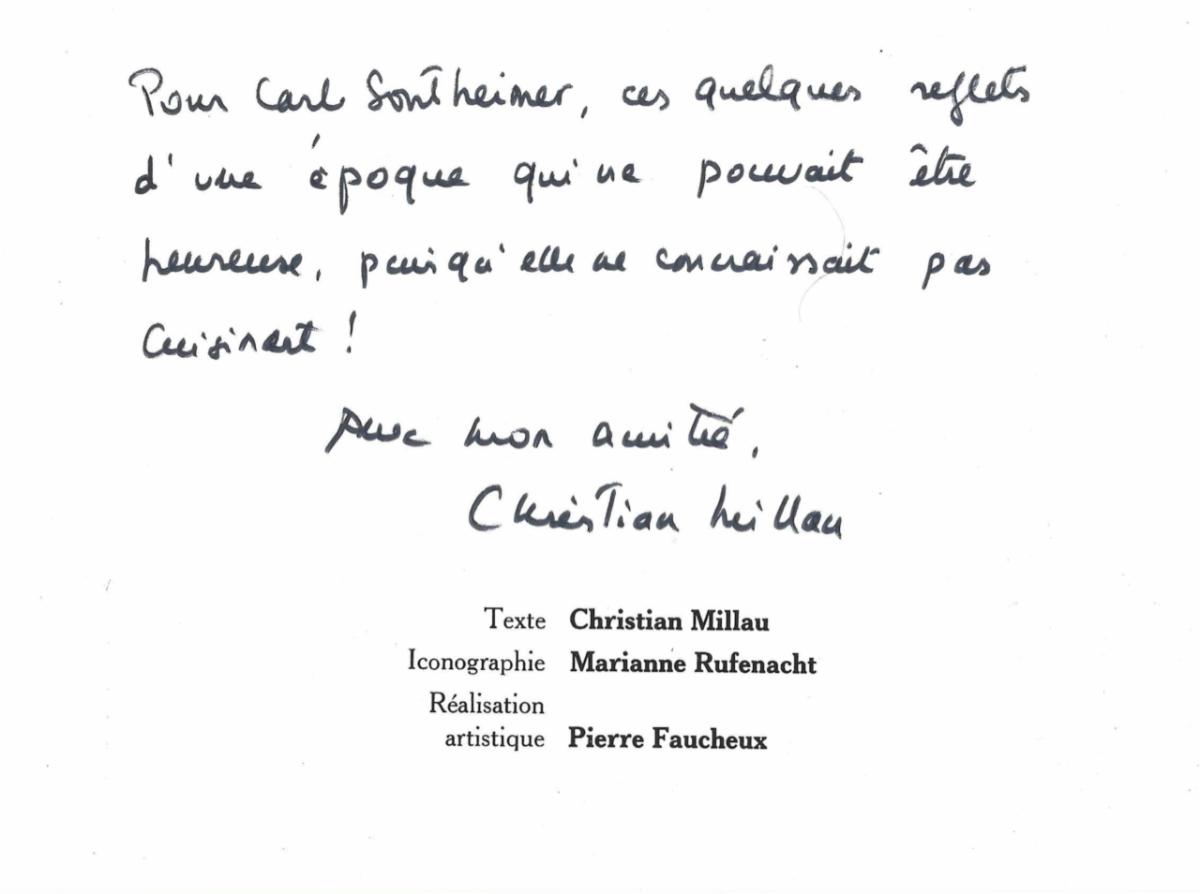 Pour Carl Sontheimer, ces quelques reflets
d'une époque qui ne pouvait être
heureuse, puisqu'elle ne connaissait pas
Cuisinart !
Avec mon amitié,
Christian Millau
Texte Christian Millau
Iconographie Marianne Rufenacht
Réalisation
artistique Pierre Faucheux